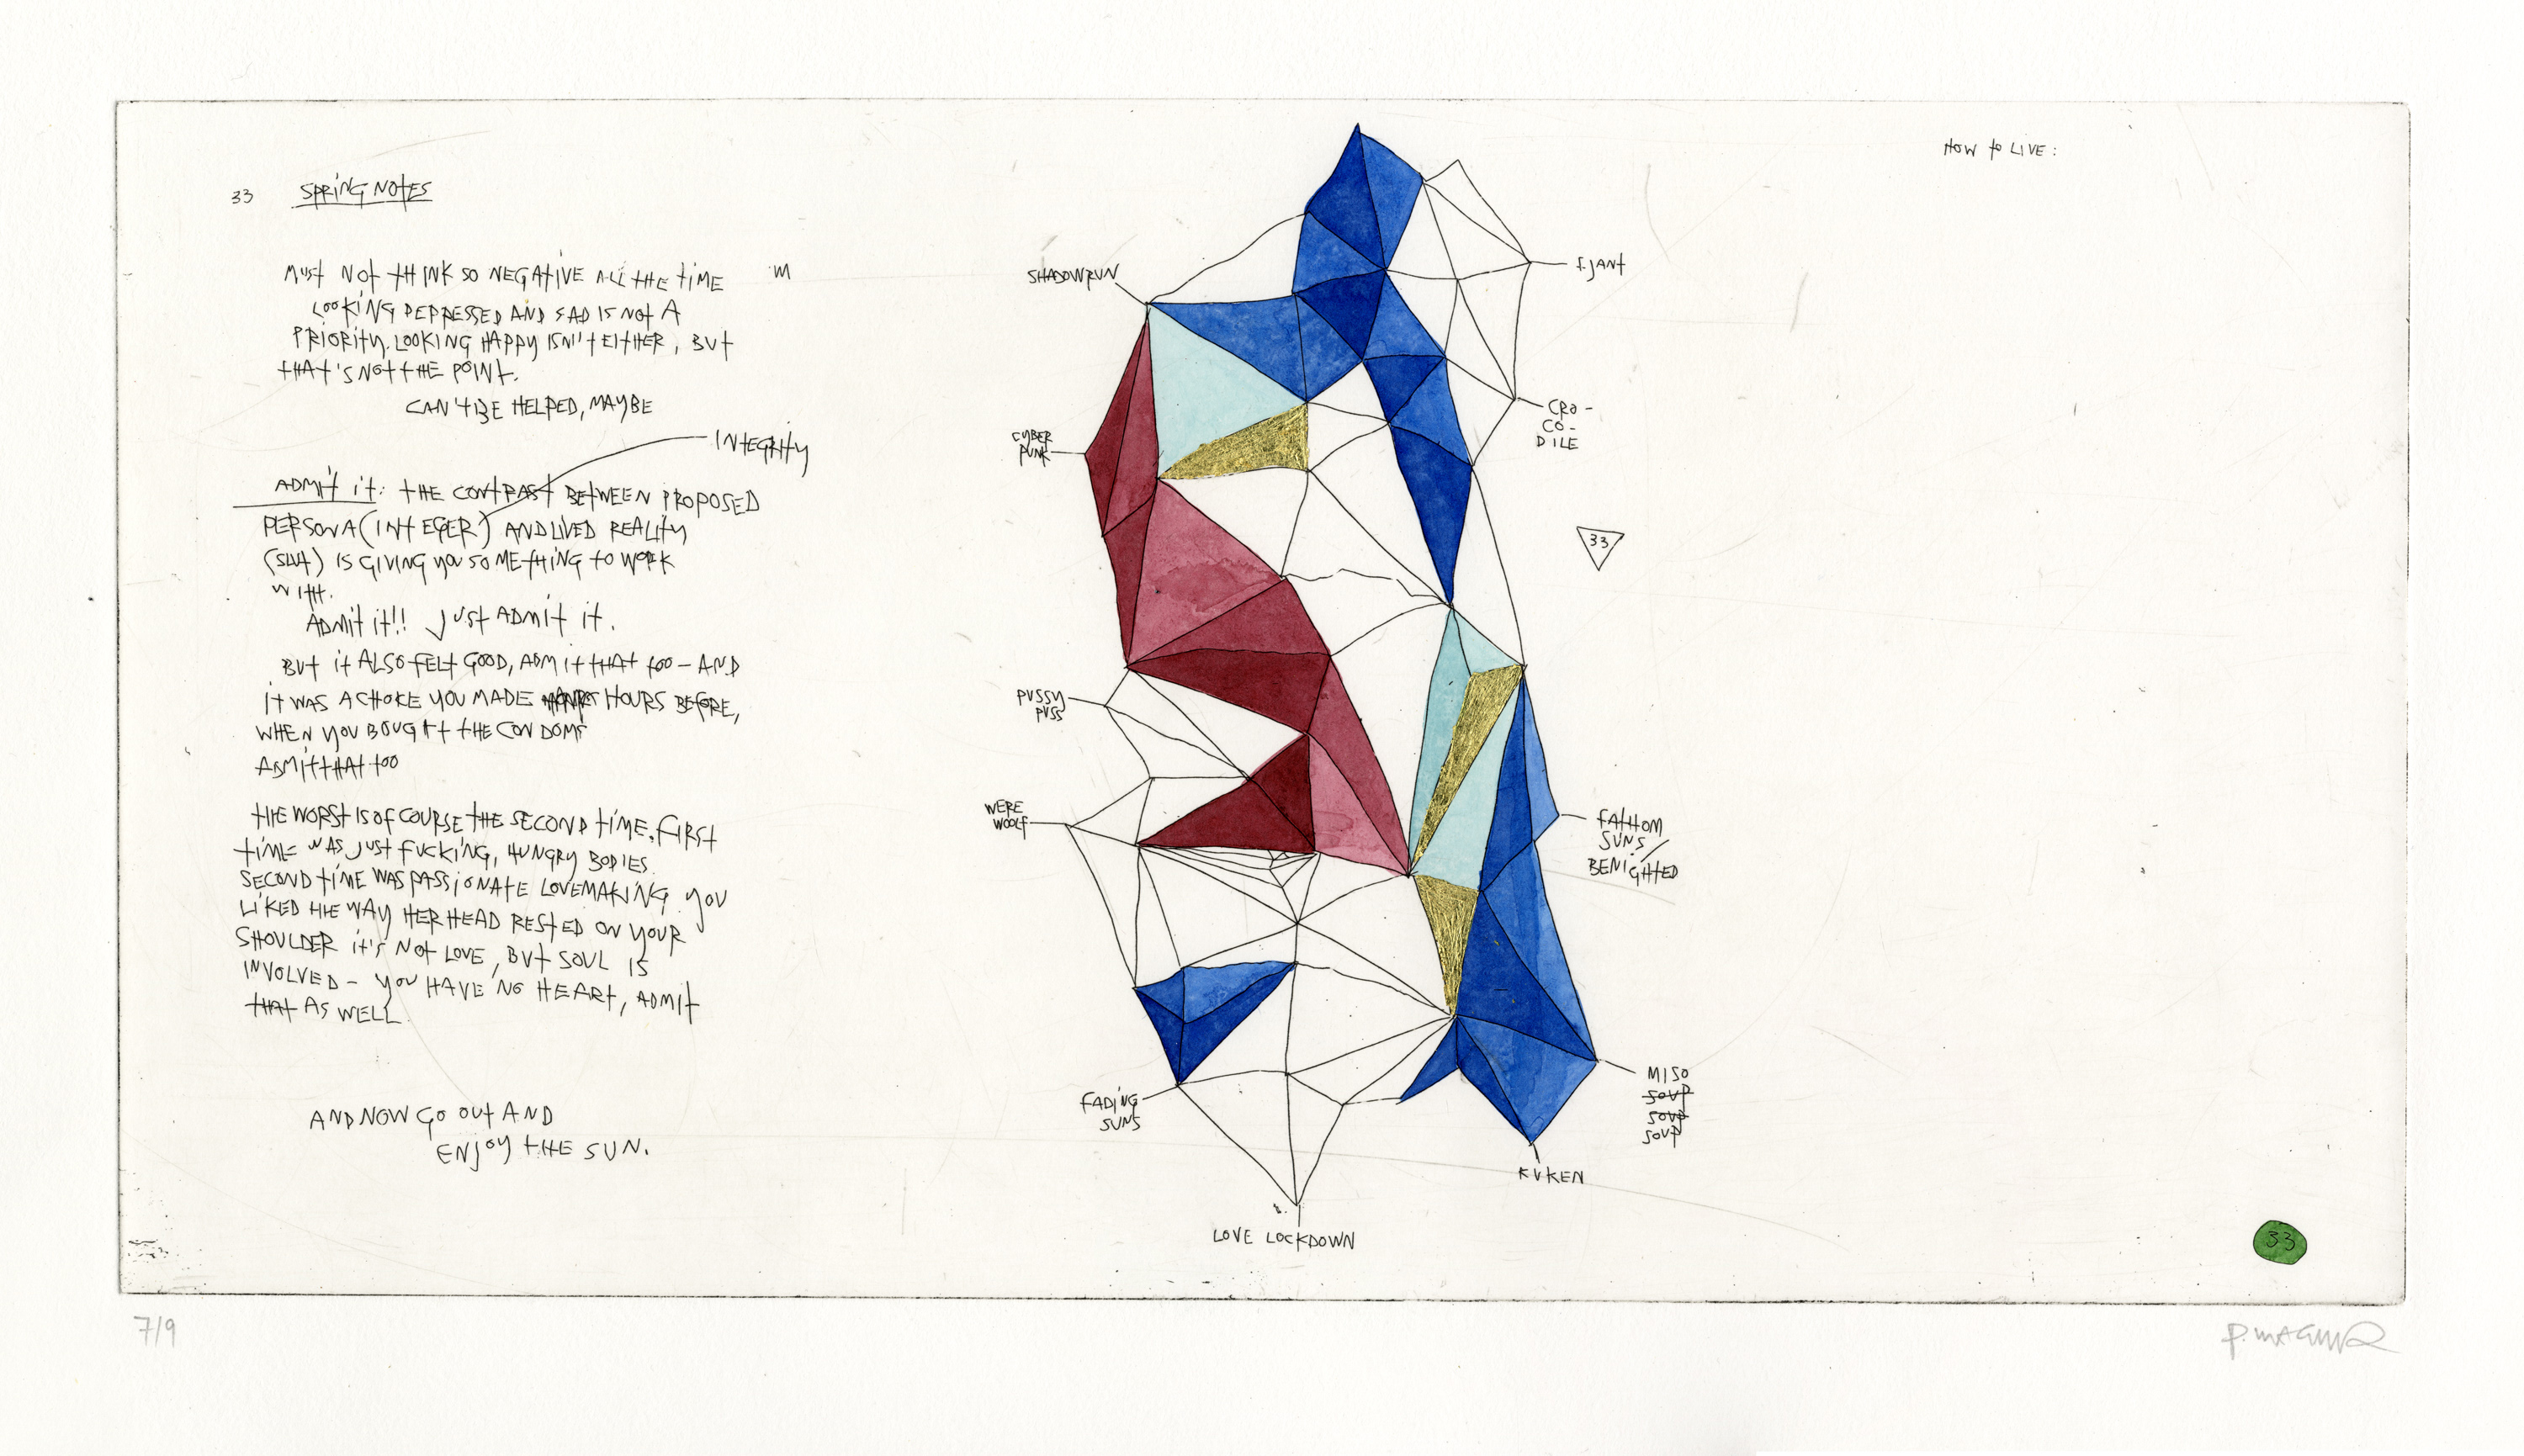 33 SPRING NOTES
MUST NOT THINK SO NEGATIVE ALL THE TIME
LOOKING DEPRESSED AND SAD IS NOT A
PRIORITY. LOOKING HAPPY ISN'T EITHER, BUT
THAT'S NOT THE POINT.
CAN'T BE HELPED, MAYBE
INTEGRITY
ADMIT IT: THE CONTRAST BETWEEN PROPOSED
PERSONA (INTEGER) AND LIVED REALITY
(SLUT) IS GIVING YOU SOMETHING TO WORK
WITH.
ADMIT IT!! JUST ADMIT IT.
BUT IT ALSO FELT GOOD, ADMIT THAT TOO – AND
IT WAS A CHOKE YOU MADE HOURS BEFORE,
WHEN YOU BOUGHT THE CONDOMS
ADMIT THAT TOO
THE WORST IS OF COURSE THE SECOND TIME. FIRST
TIME WAS JUST FUCKING, HUNGRY BODIES.
SECOND TIME WAS PASSIONATE LOVEMAKING. YOU
LIKED THE WAY HER HEAD RESTED ON YOUR
SHOULDER IT'S NOT LOVE, BUT SOUL IS
INVOLVED – YOU HAVE NO HEART, ADMIT
THAT AS WELL.
AND NOW GO OUT AND
ENJOY THE SUN.
SHADOWRUN
CYBER
PUNK
PUSSY
PUSS
WERE
WOOLF
FADING
SUNS
LOVE LOCKDOWN
KUKEN
MISO
SOUP
SOUP
SOUP
FATHOM
SUNS/
BENIGHTED
33
CRO-
CO-
DILE
FJANT
HOW TO LIVE:
33
7/9